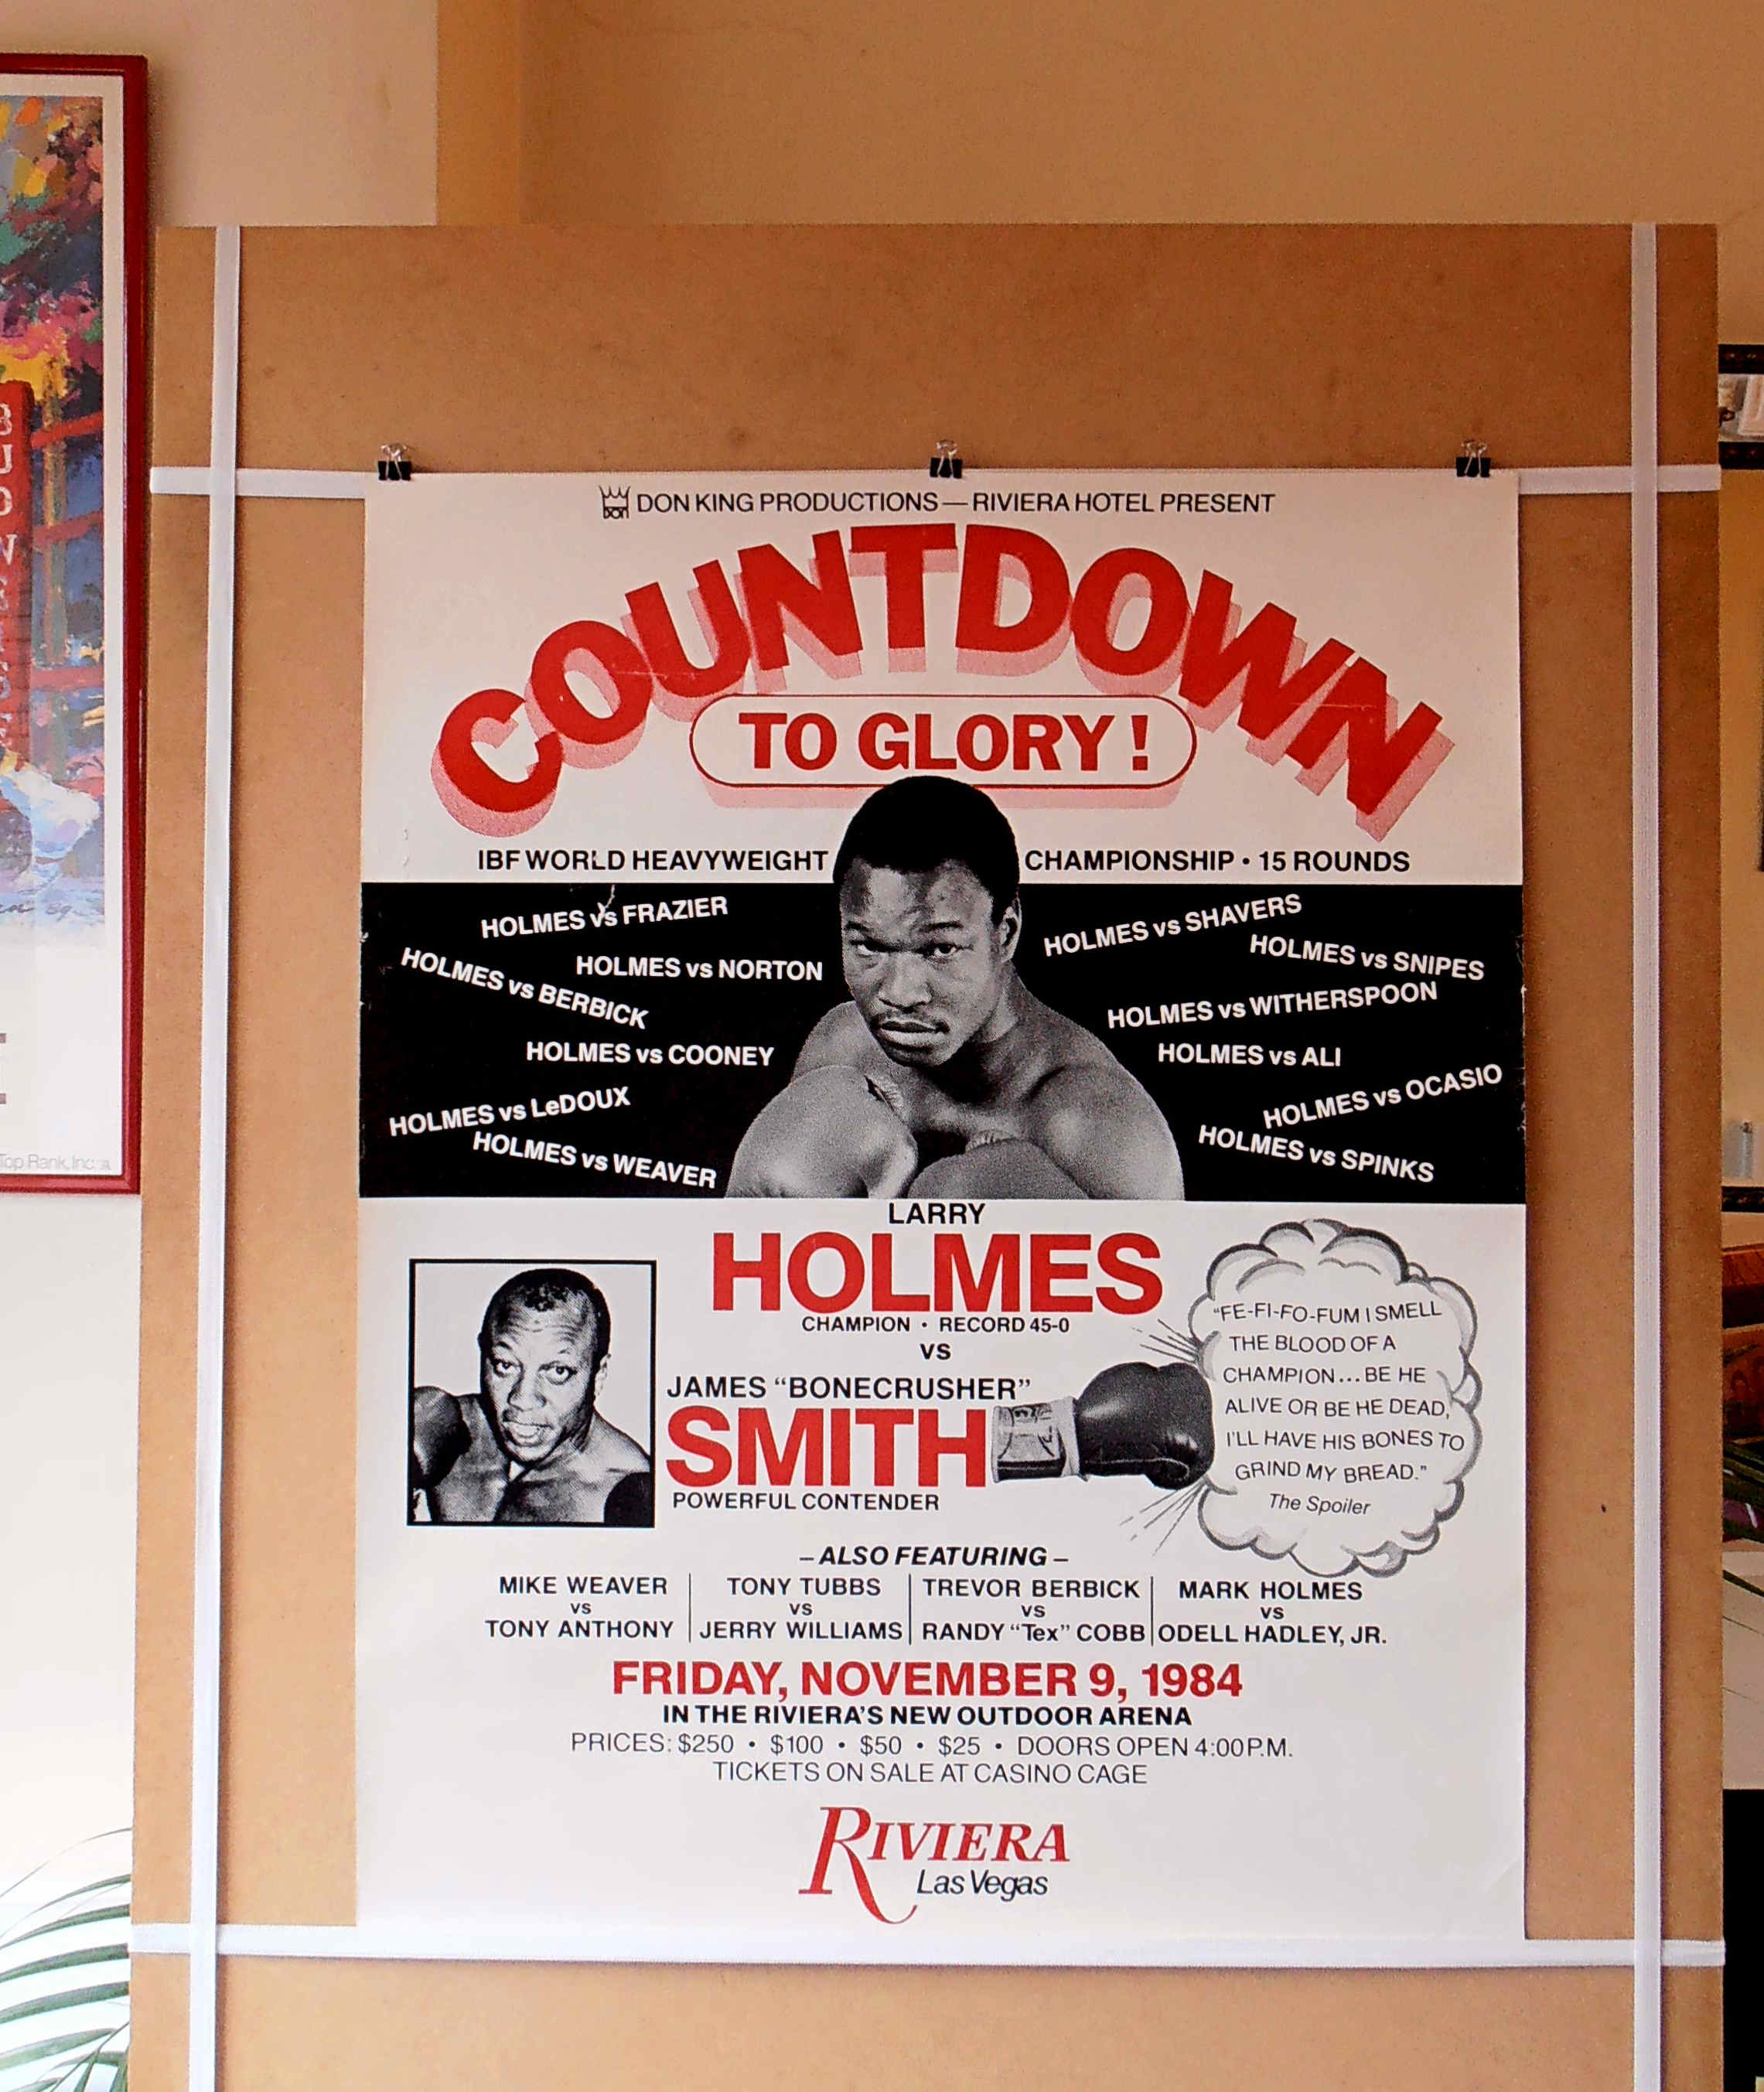 DON KING PRODUCTIONS — RIVIERA HOTEL PRESENT
COUNTDOWN
TO GLORY!
IBF WORLD HEAVYWEIGHT CHAMPIONSHIP • 15 ROUNDS
HOLMES vs FRAZIER
HOLMES vs NORTON
HOLMES vs BERBICK
HOLMES vs COONEY
HOLMES vs LeDOUX
HOLMES vs WEAVER
HOLMES vs SHAVERS
HOLMES vs SNIPES
HOLMES vs WITHERSPOON
HOLMES vs ALI
HOLMES vs OCASIO
HOLMES vs SPINKS
LARRY
HOLMES
CHAMPION • RECORD 45-0
VS
JAMES “BONECRUSHER”
SMITH
POWERFUL CONTENDER
“FE-FI-FO-FUM I SMELL
THE BLOOD OF A
CHAMPION...BE HE
ALIVE OR BE HE DEAD,
I'LL HAVE HIS BONES TO
GRIND MY BREAD.”
The Spoiler
– ALSO FEATURING –
MIKE WEAVER
VS
TONY ANTHONY
TONY TUBBS
VS
JERRY WILLIAMS
TREVOR BERBICK
VS
RANDY “Tex” COBB
MARK HOLMES
VS
ODELL HADLEY, JR.
FRIDAY, NOVEMBER 9, 1984
IN THE RIVIERA'S NEW OUTDOOR ARENA
PRICES: $250 • $100 • $50 • $25 • DOORS OPEN 4:00 P.M.
TICKETS ON SALE AT CASINO CAGE
RIVIERA
Las Vegas
Top Rank, Inc.